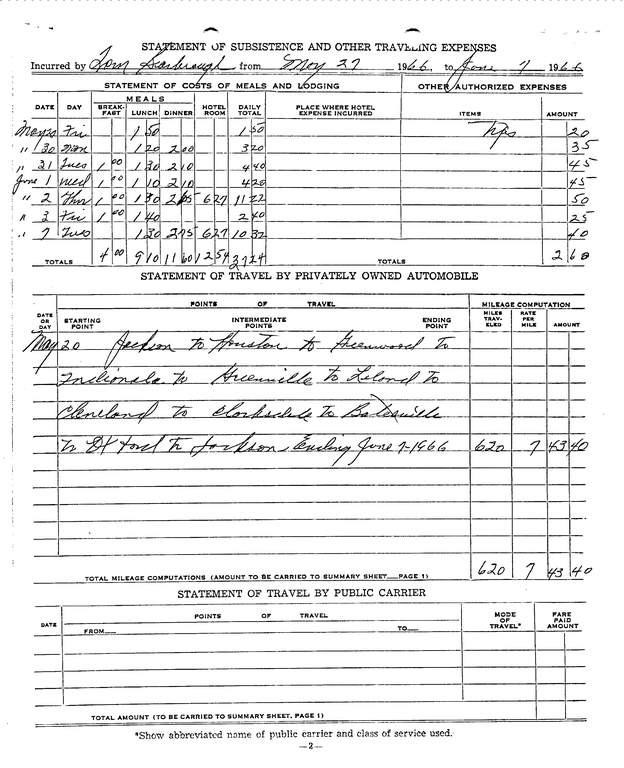 STATEMENT OF SUBSISTENCE AND OTHER TRAVELING EXPENSES
Incurred by Tom Scarbrough from May 27 1966, to June 7 1966
STATEMENT OF COSTS OF MEALS AND LODGING OTHER AUTHORIZED EXPENSES
MEALS
DATE DAY BREAK-FAST LUNCH DINNER HOTEL ROOM DAILY TOTAL PLACE WHERE HOTEL EXPENSE INCURRED ITEMS AMOUNT
Fri 1 50 1 50 tips 20
" 30 Mon 1 20 2 00 3 20 35
" 31 Tues 1 00 1 30 2 10 4 40 45
June 1 Wed 1 00 1 10 2 10 4 20 45
" 2 Thur 1 00 1 30 2 65 6 27 11 22 50
" 3 Fri 1 00 1 40 2 40 25
" 7 Tues 1 30 2 75 6 27 10 32 40
TOTALS 4 00 9 10 11 60 12 54 37 24 TOTALS 2 60
STATEMENT OF TRAVEL BY PRIVATELY OWNED AUTOMOBILE
POINTS OF TRAVEL MILEAGE COMPUTATION
DATE OR DAY STARTING POINT INTERMEDIATE POINTS ENDING POINT MILES TRAV-ELED RATE PER MILE AMOUNT
May 20 Jackson to Houston to Greenwood to
Indianola to Greenville to Leland to
Cleveland to Clarksdale to Batesville
to Oxford to Jackson, Ending June 7-1966 620 7 43 40
TOTAL MILEAGE COMPUTATIONS (AMOUNT TO BE CARRIED TO SUMMARY SHEET__PAGE 1) 620 7 43 40
STATEMENT OF TRAVEL BY PUBLIC CARRIER
DATE POINTS OF TRAVEL MODE OF TRAVEL* FARE PAID AMOUNT
FROM__ TO__
TOTAL AMOUNT (TO BE CARRIED TO SUMMARY SHEET, PAGE 1)
*Show abbreviated name of public carrier and class of service used.
—2—